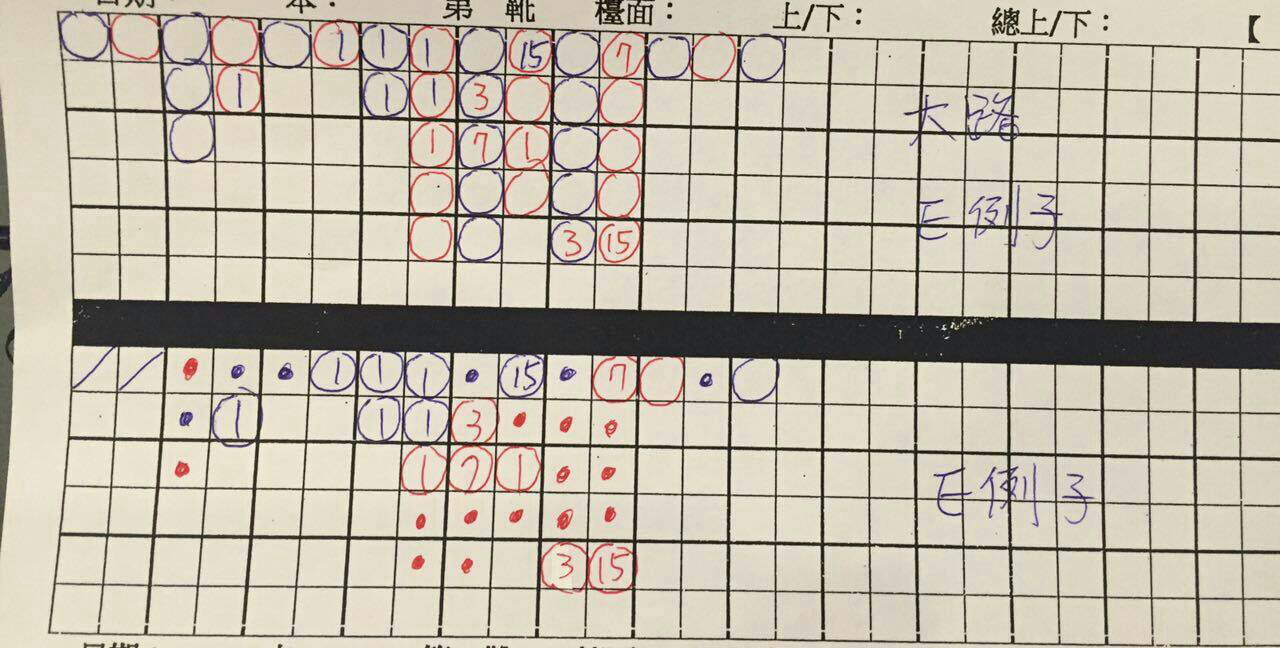 日期： 本： 第 靴 檯面： 上/下： 總上/下： 【
1 1 1 15 7
1 1 1 3
1 7 1
3 15
大路
E例子
1 1 1 15 7
1 1 1 3
1 7 1
3 15
E例子